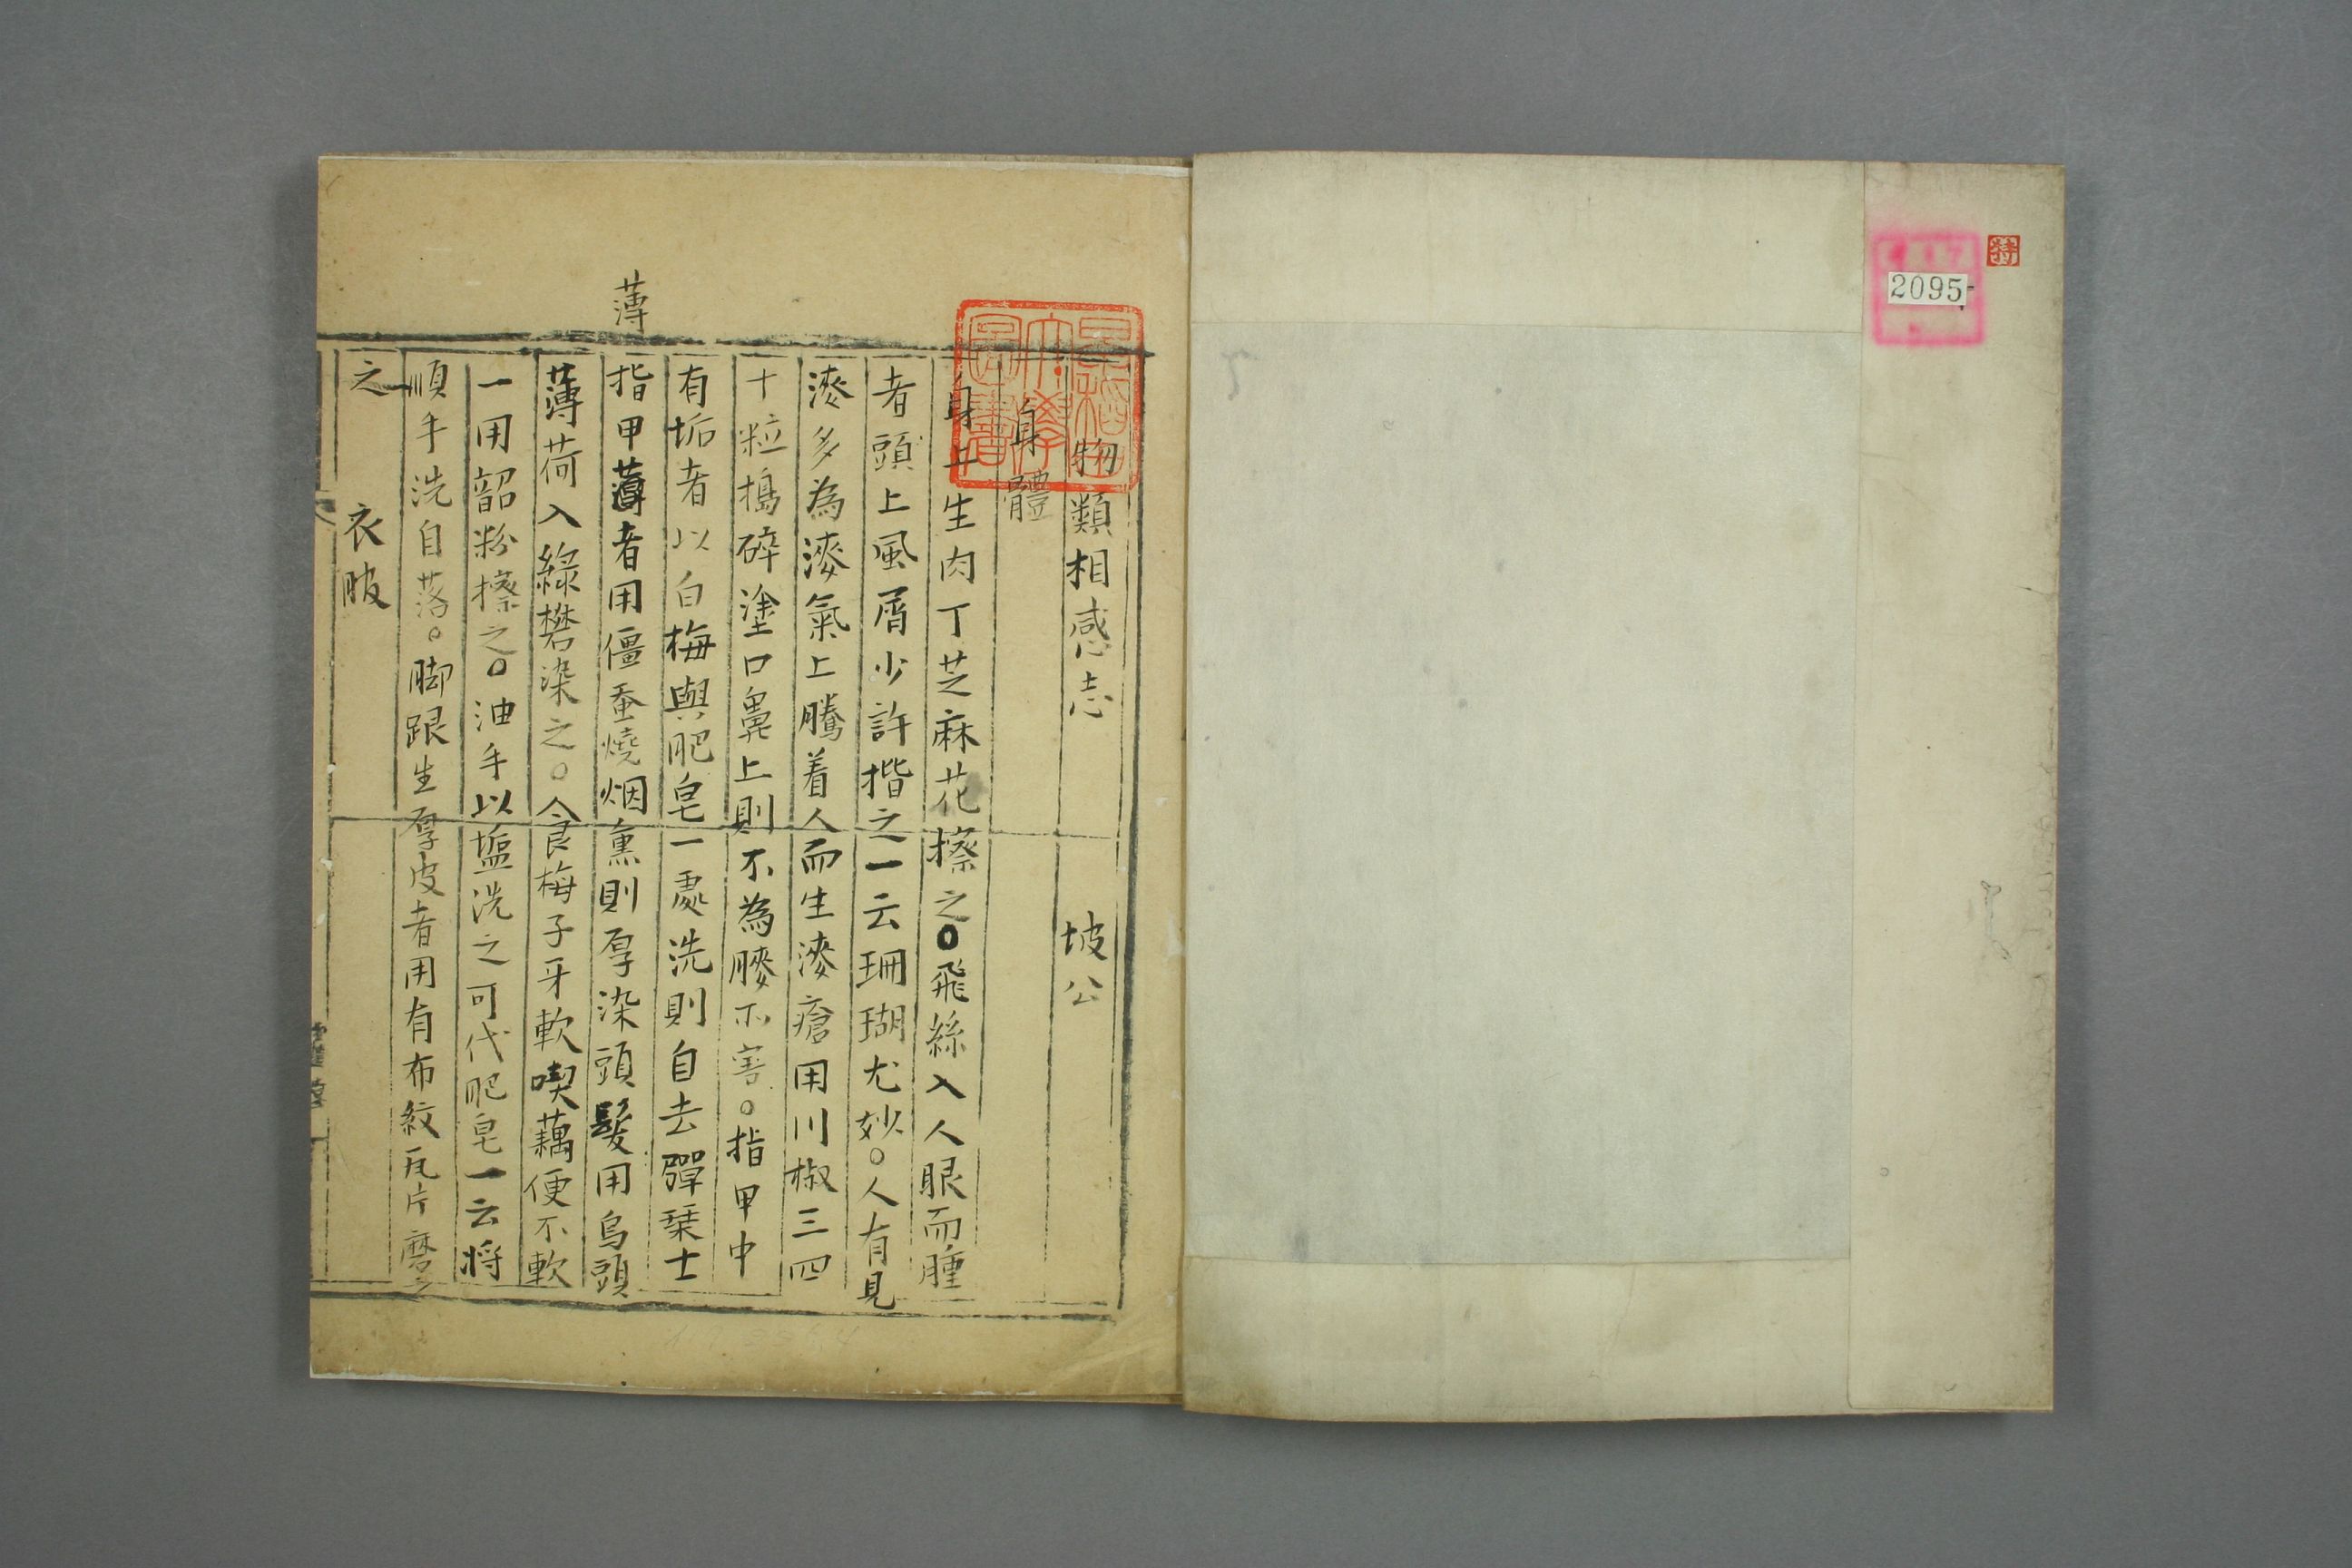 特
2095
早稲田大學圖書
物類相感志 坡公
身體
身上生肉丁芝麻花擦之○飛絲入人眼而腫
者頭上風屑少許揩之一云珊瑚尤妙○人有見
漆多為漆氣上騰着人而生漆瘡用川椒三四
十粒搗碎塗口鼻上則不為漆所害○指甲中
有垢者以白梅與肥皂一處洗則自去彈琴士
薄
指甲薄者用僵蚕燒烟熏則厚染頭髮用烏頭
薄荷入綠礬染之○食梅子牙軟喫藕便不軟
一用韶粉擦之○油手以塩洗之可代肥皂一云將
順手洗自落○脚跟生厚皮者用有布紋瓦片磨之
之 衣服